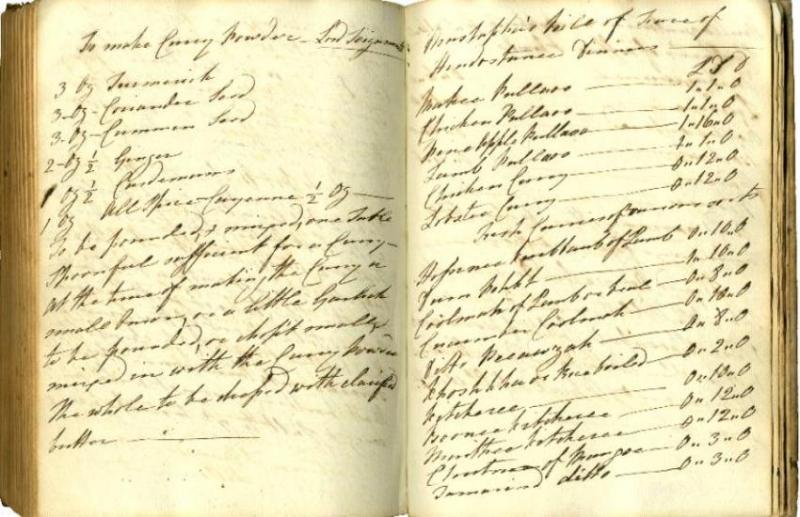 To make Curry Powder Lord Teignmouth
3 Oz Turmerick
3-Oz-Coriander Seed
3-Oz-Cummin Seed
2-Oz ½ Ginger
1 Oz ½ Cardamums
1 Oz All Spice-Cayenne ½ Oz
To be pounded, & mixed, one Table
Spoonful sufficient for a Curry-
At the time of making the Curry a
small onion, or a little Garlick
to be pounded, or chopt small &
mixed in with the Curry Powder
The whole to be dressed with clarified
butter
Bill of Fare of
Hindostanee Dinners
L S D
Makee Pullaoo 1"1"0
Chicken Pullaoo 1"1"0
Pine Apple Pullaoo 1"16"0
Lamb Pullaoo 1"1"0
Chicken Curry 0"12"0
Lobster Curry 0"12"0
Coolmah of Lamb or Veal 0"8"0
Cucumber Coolmah 0"10"0
Ditto 0"8"0
or Rice boiled 0"2"0
Kitcheree 0"10"0
Kitcheree 0"12"0
Kitcheree 0"12"0
of Mangoe 0"3"0
Tamarind ditto 0"3"0